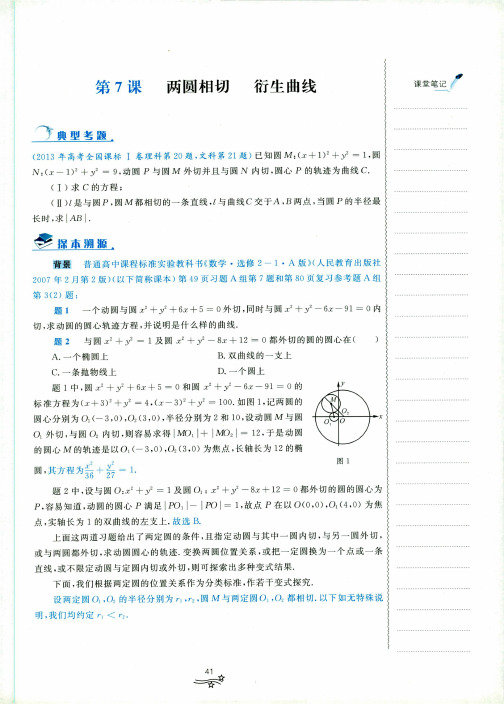 第7课 两圆相切 衍生曲线
课堂笔记
典型考题
(2013年高考全国课标Ⅰ卷理科第20题,文科第21题)已知圆M:(x+1)²+y²=1,圆
N:(x-1)²+y²=9,动圆P与圆M外切并且与圆N内切,圆心P的轨迹为曲线C.
(Ⅰ)求C的方程;
(Ⅱ)l是与圆P,圆M都相切的一条直线,l与曲线C交于A,B两点,当圆P的半径最
长时,求|AB|.
探本溯源
背景 普通高中课程标准实验教科书《数学·选修2-1·A版》(人民教育出版社
2007年2月第2版)(以下简称课本)第49页习题A组第7题和第80页复习参考题A组
第3(2)题:
题1 一个动圆与圆x²+y²+6x+5=0外切,同时与圆x²+y²-6x-91=0内
切,求动圆的圆心轨迹方程,并说明是什么样的曲线.
题2 与圆x²+y²=1及圆x²+y²-8x+12=0都外切的圆的圆心在( )
A.一个椭圆上 B.双曲线的一支上
C.一条抛物线上 D.一个圆上
题1中,圆x²+y²+6x+5=0和圆x²+y²-6x-91=0的
标准方程为(x+3)²+y²=4,(x-3)²+y²=100.如图1,记两圆的
圆心分别为O₁(-3,0),O₂(3,0),半径分别为2和10,设动圆M与圆
O₁外切,与圆O₂内切,则容易求得|MO₁|+|MO₂|=12,于是动圆
的圆心M的轨迹是以O₁(-3,0),O₂(3,0)为焦点,长轴长为12的椭
圆,其方程为x²/36+y²/27=1.
y
M
O₂
O₁ O x
图1
题2中,设与圆O:x²+y²=1及圆O₁:x²+y²-8x+12=0都外切的圆的圆心为
P,容易知道,动圆的圆心P满足|PO₁|-|PO|=1,故点P在以O(0,0),O₁(4,0)为焦
点,实轴长为1的双曲线的左支上.故选B.
上面这两道习题给出了两定圆的条件,且指定动圆与其中一圆内切,与另一圆外切,
或与两圆都外切,求动圆圆心的轨迹.变换两圆位置关系,或把一定圆换为一个点或一条
直线,或不限定动圆与定圆内切或外切,则可探索出多种变式结果.
下面,我们根据两定圆的位置关系作为分类标准,作若干变式探究.
设两定圆O₁,O₂的半径分别为r₁,r₂,圆M与两定圆O₁,O₂都相切.以下如无特殊说
明,我们均约定r₁<r₂.
41